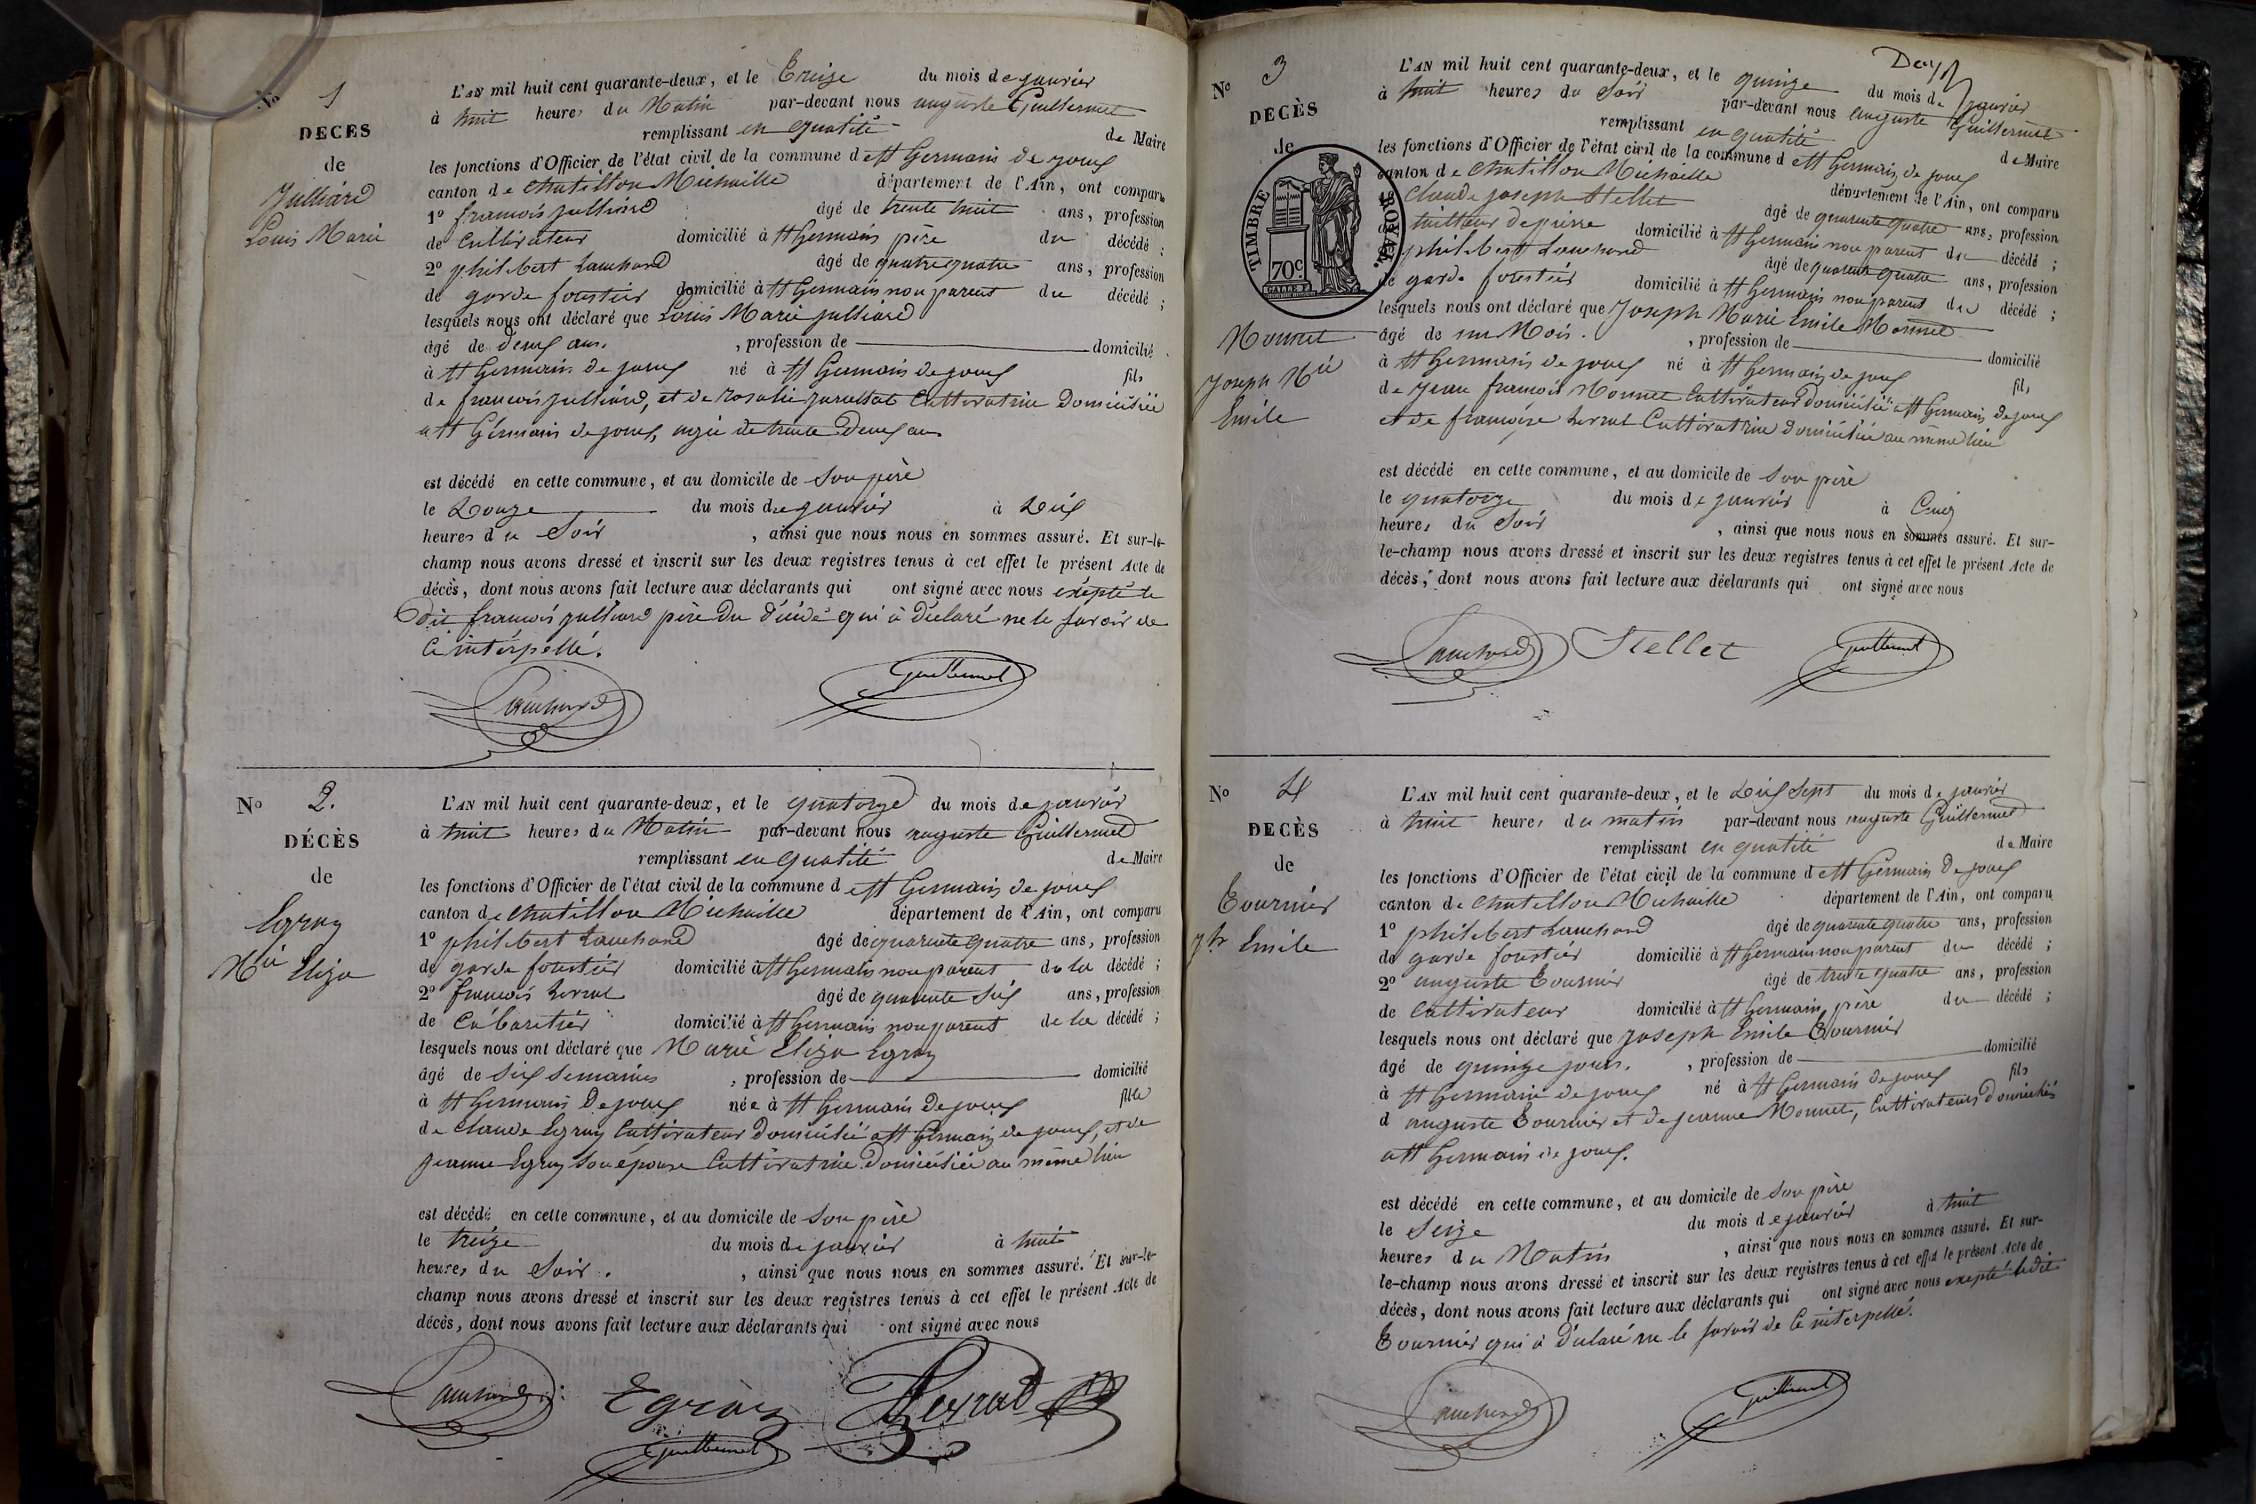 No 1
DECES
de
Julliard
Louis Marie
L'AN mil huit cent quarante-deux, et le Treize du mois de janvier
à huit heures du Matin par-devant nous auguste Guillermet
remplissant en qualité de Maire
les fonctions d'Officier de l'état civil de la commune de st Germain de joux
canton de Chatillon Michaille département de l'Ain, ont comparu
1o francois julliard âgé de trente huit ans, profession
de Cultivateur domicilié à st Germain père du décédé ;
2o philibert Lanchard âgé de quatre quatre ans, profession
de garde forestier domicilié à st Germain non parent du décédé ;
lesquels nous ont déclaré que Louis Marie julliard
âgé de deux ans. , profession de domicilié
à st Germain de joux né à st Germain de joux fils
de francois julliard, et de rosalie Cultivatrice Domiciliée
a st Germain de joux, agée de trente deux ans
est décédé en cette commune, et au domicile de son père
le Douze du mois de janvier à Dix
heures du Soir , ainsi que nous nous en sommes assuré. Et sur-le-
champ nous avons dressé et inscrit sur les deux registres tenus à cet effet le présent Acte de
décès, dont nous avons fait lecture aux déclarants qui ont signé avec nous exepté le
Dit francois julliard père Du Décédé qui à Déclaré ne le savoir de
Ce intérpellé.
Lanchard Guillermet
No 2.
DÉCÈS
de
Egraz
Mie Eliza
L'AN mil huit cent quarante-deux, et le quatorze du mois de janvier
à huit heures du Matin par-devant nous auguste Guillermet
remplissant en qualité de Maire
les fonctions d'Officier de l'état civil de la commune de st Germain de joux
canton de Chatillon Michaille département de l'Ain, ont comparu
1o philibert Lanchard âgé de quarente quatre ans, profession
de garde forestier domicilié à st Germain non parent de la décédé ;
2o francois Perrat âgé de quarente six ans, profession
de Cabaretier domicilié à st Germain non parent de la décédé ;
lesquels nous ont déclaré que Marie Eliza Egraz
âgé de six semaines , profession de domicilié
à st Germain De joux née à st Germain De joux fille
de Claude Egraz Cultivateur Domicilié a st Germain de joux, et de
jeanne Egraz son épouse Cultivatrice Domiciliée au même lieu
est décédé en cette commune, et au domicile de son père
le treize du mois de janvier à huit
heures du Soir. , ainsi que nous nous en sommes assuré. Et sur-le-
champ nous avons dressé et inscrit sur les deux registres tenus à cet effet le présent Acte de
décès, dont nous avons fait lecture aux déclarants qui ont signé avec nous
Lanchard Egraz Perrat
Guillermet
No 3
DÉCÈS
de
TIMBRE ROYAL.
70c.
Monnet
Joseph Mie
Emile
L'AN mil huit cent quarante-deux, et le quinze du mois de janvier
à huit heures du Soir par-devant nous auguste Guillermet
remplissant en qualité de Maire
les fonctions d'Officier de l'état civil de la commune de st Germain de joux
canton de Chatillon Michaille département de l'Ain, ont comparu
Claude joseph Stellet âgé de quarente quatre ans, profession
tailleur de pierre domicilié à st Germain non parent du décédé ;
philibert Lanchard âgé de quarente quatre ans, profession
de garde forestier domicilié à st Germain non parent du décédé ;
lesquels nous ont déclaré que Joseph Marie Emile Monnet
âgé de un Mois. , profession de domicilié
à st Germain de joux né à st Germain de joux fils
de jean francois Monnet Cultivateur Domicilié a st Germain De joux
et de francoise Perrat Cultivatrice Domiciliée au même lieu
est décédé en cette commune, et au domicile de son père
le quatorze du mois de janvier à Cinq
heures du Soir , ainsi que nous nous en sommes assuré. Et sur-
le-champ nous avons dressé et inscrit sur les deux registres tenus à cet effet le présent Acte de
décès, dont nous avons fait lecture aux déclarants qui ont signé avec nous
Lanchard Stellet Guillermet
No 4
DECÈS
de
Tournier
jh Emile
L'AN mil huit cent quarante-deux, et le Dix sept du mois de janvier
à huit heures du matin par-devant nous auguste Guillermet
remplissant en qualité de Maire
les fonctions d'Officier de l'état civil de la commune de st Germain De joux
canton de Chatillon Michaille département de l'Ain, ont comparu
1o philibert Lanchard âgé de quarente quatre ans, profession
de garde forestier domicilié à st Germain non parent du décédé ;
2o auguste Tournier âgé de trente quatre ans, profession
de Cultivateur domicilié à st Germain père du décédé ;
lesquels nous ont déclaré que joseph Emile Tournier
âgé de quinze jours. , profession de domicilié
à st Germain de joux né à st Germain de joux fils
d auguste Tournier et de jeanne Monnet, Cultivateurs Domiciliés
a st Germain de joux.
est décédé en cette commune, et au domicile de son père
le Seize du mois de janvier à huit
heures du Matin , ainsi que nous nous en sommes assuré. Et sur-
le-champ nous avons dressé et inscrit sur les deux registres tenus à cet effet le présent Acte de
décès, dont nous avons fait lecture aux déclarants qui ont signé avec nous exepté ledit
Tournier qui à Déclaré ne le savoir de Ce interpellé.
Lanchard Guillermet